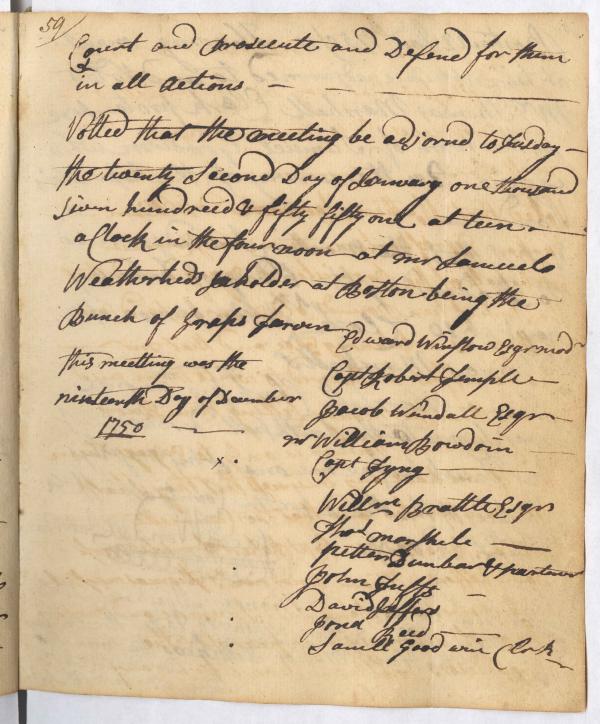 59
Court and prosecute and Defend for them
& in all actions
Votted that the meeting be adjornd to Tuesday
the twenty Second Day of January one thousand
Siven hundreed & fifty fifty one at teen
a Clock in the four noon at mr Samuels
Weatherheds inholder at Bostton being the
Bunch of Graps Tarven
this meeting was the
ninteenth Day of December
1750
Edward Winslow Esqr mod
Capt Robert Temple
Jacob Windall Esqr
mr William Bowdoin
Capt Tyng
Willm Brattle Esqr
Thos marshele
petter Dunbar & partener
John Tufts
David Jeffers
Jond Reed
Samll Goodwin Clerk